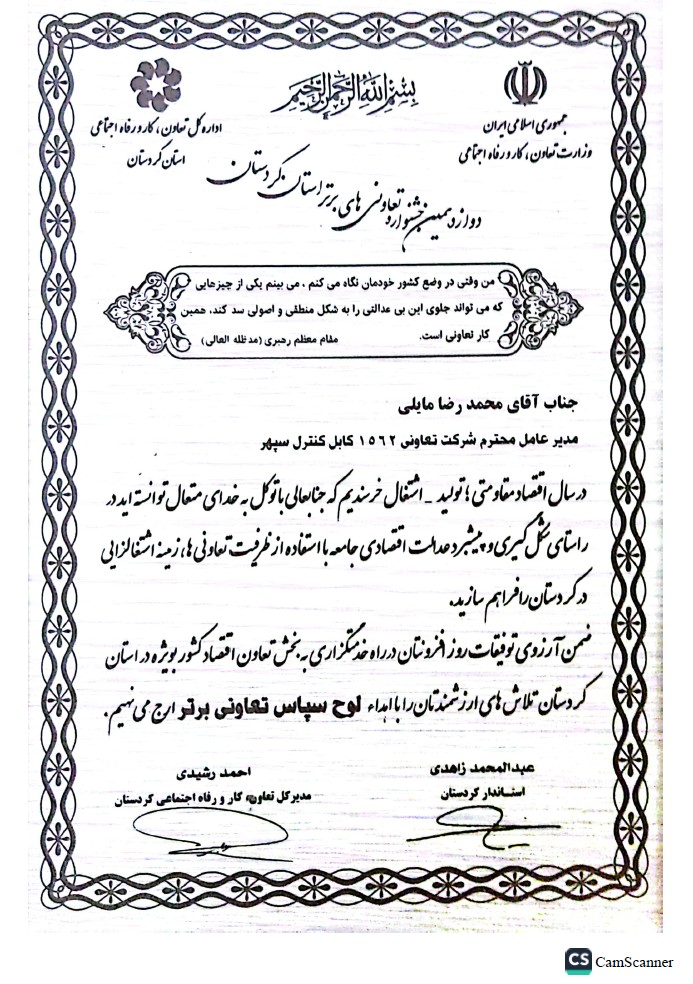 بسم الله الرحمن الرحیم
جمهوری اسلامی ایران
وزارت تعاون، کار و رفاه اجتماعی
اداره کل تعاون، کار و رفاه اجتماعی
استان کردستان
دوازدهمین جشنواره تعاونی های برتر استان کردستان
من وقتی در وضع کشور خودمان نگاه می کنم ، می بینم یکی از چیزهایی
که می تواند جلوی این بی عدالتی را به شکل منطقی و اصولی سد کند، همین
کار تعاونی است.
مقام معظم رهبری (مدظله العالی)
جناب آقای محمد رضا مایلی
مدیر عامل محترم شرکت تعاونی ۱۵۶۲ کابل کنترل سپهر
در سال اقتصاد مقاومتی ؛ تولید - اشتغال خرسندیم که جنابعالی با توکل به خدای متعال توانسته اید در
راستای شکل گیری و پیشبرد عدالت اقتصادی جامعه با استفاده از ظرفیت تعاونی ها، زمینه اشتغالزایی
در کردستان را فراهم سازید.
ضمن آرزوی توفیقات روز افزونتان در راه خدمتگزاری به بخش تعاون اقتصاد کشور بویژه در استان
کردستان تلاش های ارزشمندتان را با اهداء لوح سپاس تعاونی برتر ارج می نهیم.
عبدالمحمد زاهدی
استاندار کردستان
احمد رشیدی
مدیرکل تعاون، کار و رفاه اجتماعی کردستان
CS CamScanner